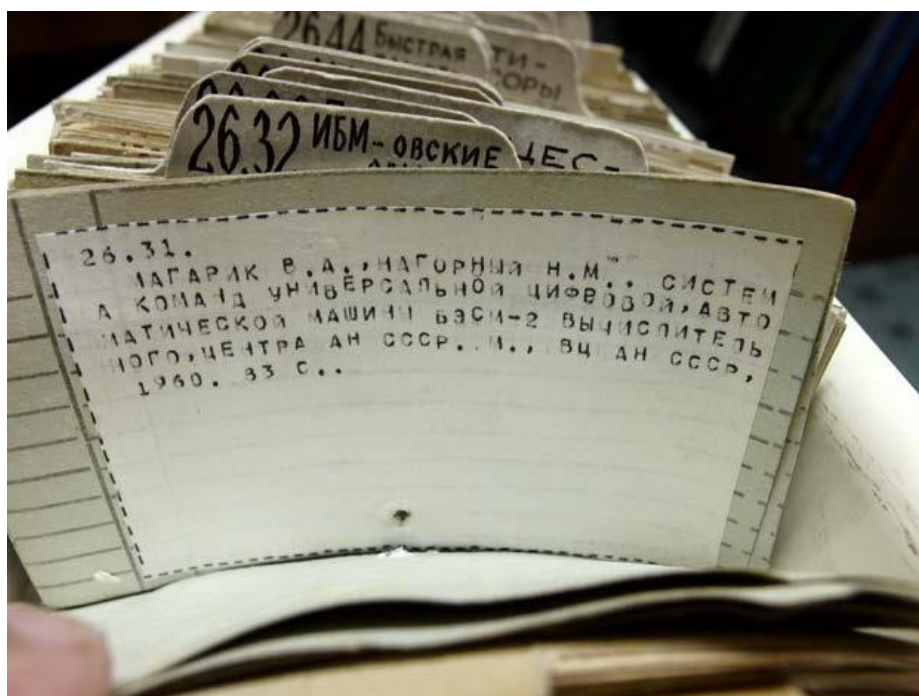 26.44 БЫСТРАЯ
ТИ-
СОРЫ
26.32 ИБМ-ОВСКИЕ
ДЕС-
26.31.
МАГАРИК В.А.,НАГОРНЫЙ Н.М... СИСТЕМ
А КОМАНД УНИВЕРСАЛЬНОЙ ЦИФРОВОЙ,АВТО
МАТИЧЕСКОЙ МАШИНЫ БЭСМ-2 ВЫЧИСЛИТЕЛЬ
НОГО,ЦЕНТРА АН СССР. М., ВЦ АН СССР,
1960. 83 С..